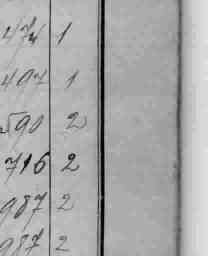 474 1
497 1
590 2
716 2
987 2
987 2